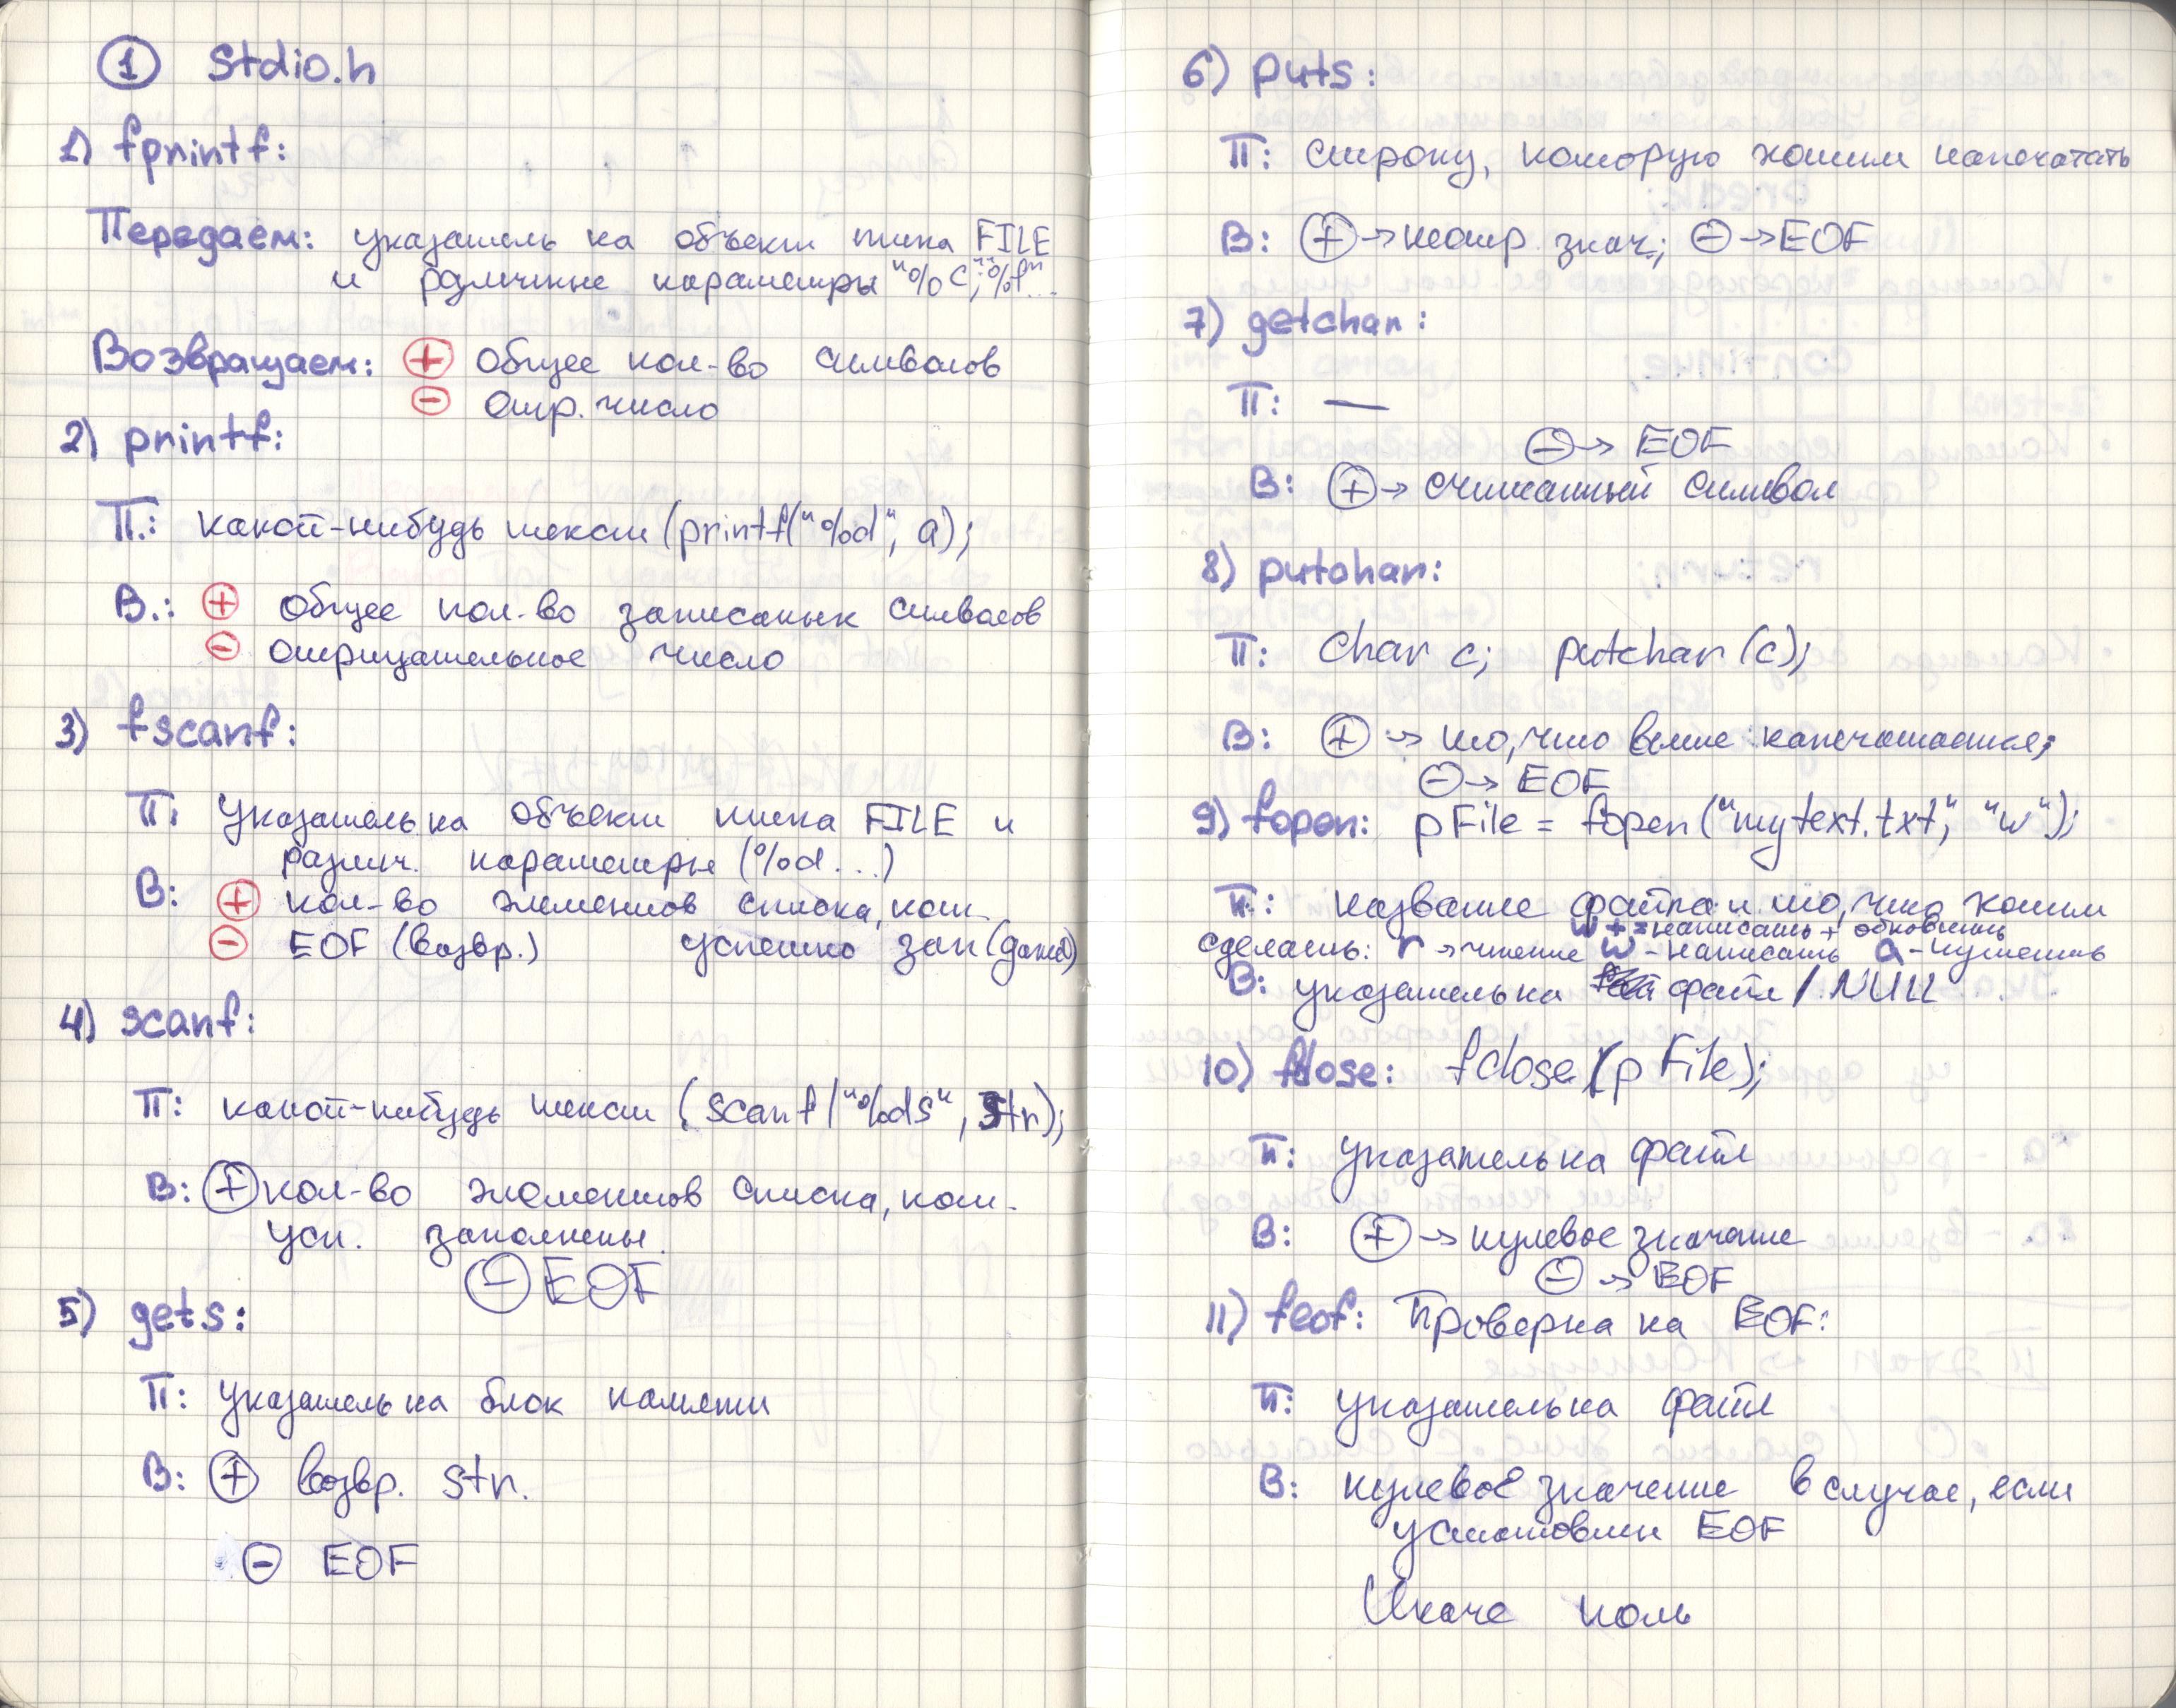 ① Stdio.h
1) fprintf:
Передаём: указатель на объект типа FILE
и различные параметры "%c"; "%f"...
Возвращаем: ⊕ общее кол-во символов
⊖ отр. число
2) printf:
П.: какой-нибудь текст (printf("%d", a);
В.: ⊕ общее кол-во записаных символов
⊖ отрицательное число
3) fscanf:
П: Указатель на объект типа FILE и
различ. параметры (%d...)
В: ⊕ кол-во элементов списка, кот.
⊖ EOF (возвр.) успешно зап
4) scanf:
П: какой-нибудь текст (scanf("%ds", str);
В: ⊕ кол-во элементов списка, кот.
усп. заполнены.
⊖ EOF
5) gets:
П: указатель на блок памяти
В: ⊕ возвр. str.
⊖ EOF
6) puts:
П: строку, которую хотим напечатать
В: ⊕→неотр. знач.; ⊖→EOF
7) getchar:
П: —
⊖→ EOF
В: ⊕→ считанный символ
8) putchar:
П: char c; putchar (c);
В: ⊕→ то, что выше напечатается;
⊖→ EOF
9) fopen: pFile = fopen("mytext.txt", "w");
П: название файла и то, что хотим
w+ = написать + обновить
сделать: r → чтение w - написать a -
В: указатель на файл / NULL
10) fclose: fclose (pFile);
П: указатель на файл
В: ⊕→ нулевое значение
⊖→ EOF
11) feof: Проверка на EOF:
П: указатель на файл
В: нулевое значение в случае, если
установлен EOF
Иначе ноль